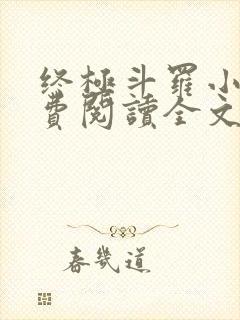 终极斗羅小
費閱讀全文
春幾道